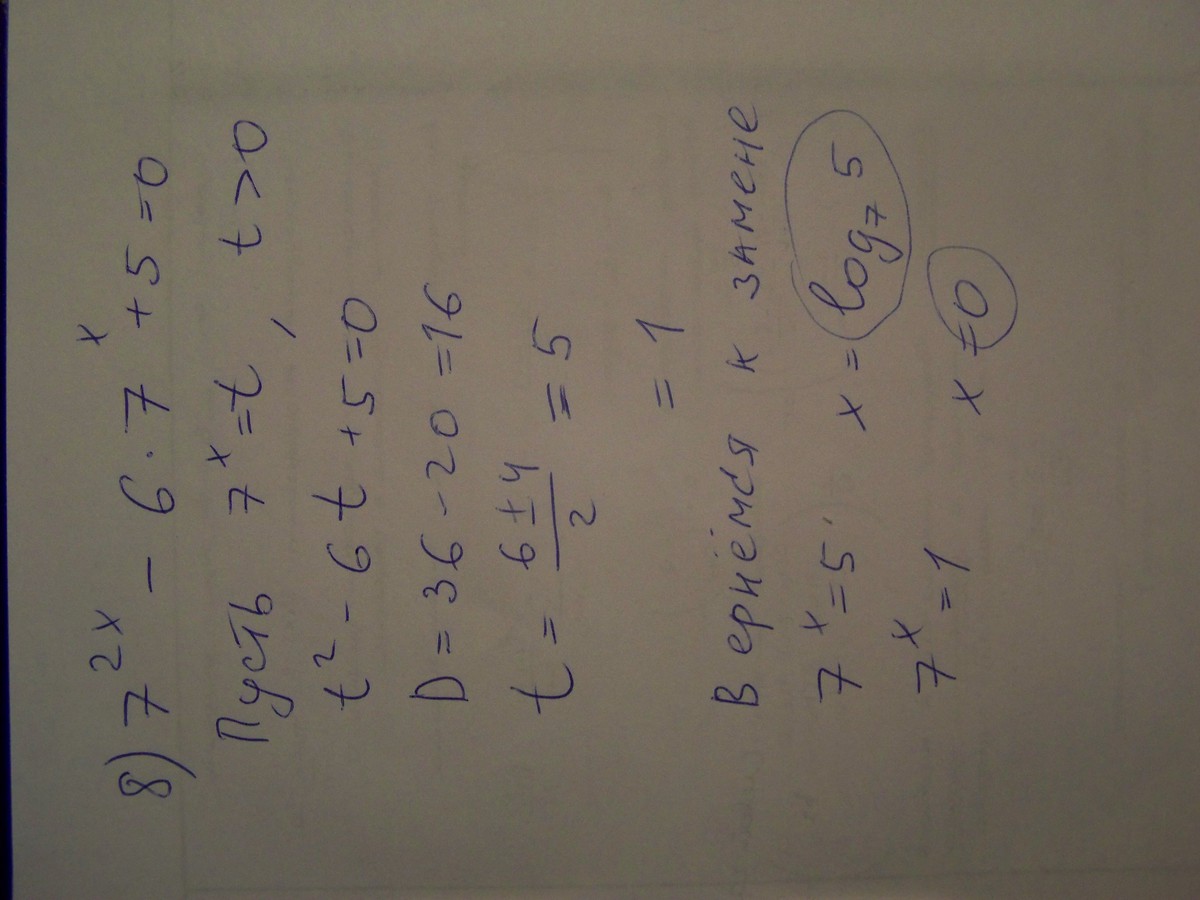 8) 7^2x - 6 · 7^x + 5 = 0
Пусть 7^x = t, t > 0
t^2 - 6t + 5 = 0
D = 36 - 20 = 16
t = (6 ± 4)/2 = 5
= 1
Вернёмся к замене
7^x = 5 x = log_7 5
7^x = 1 x = 0